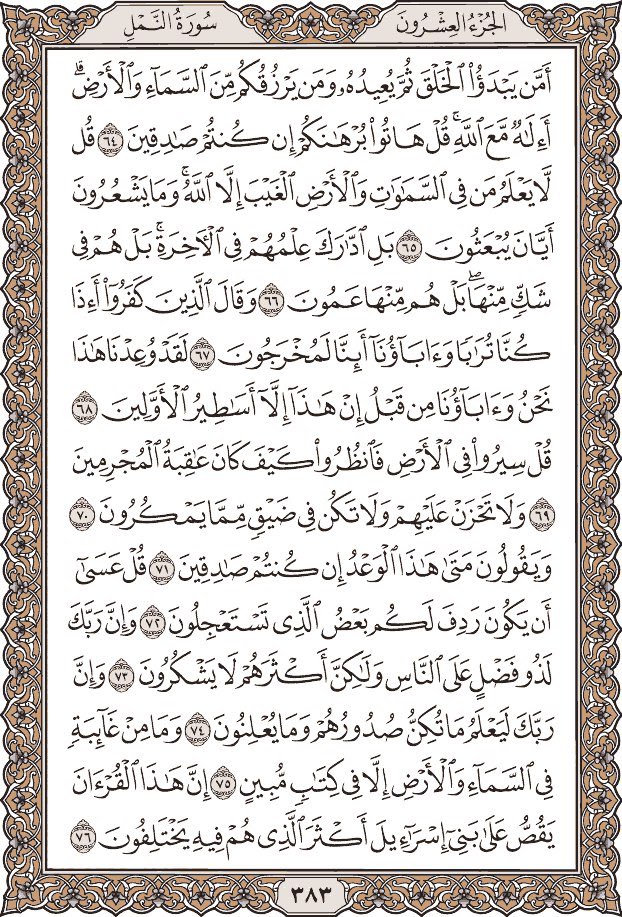 الجُزْءُ العِشْرُونَ
سُورَةُ النَّمْلِ
أَمَّن يَبْدَؤُا۟ ٱلْخَلْقَ ثُمَّ يُعِيدُهُۥ وَمَن يَرْزُقُكُم مِّنَ ٱلسَّمَآءِ وَٱلْأَرْضِۗ
أَءِلَٰهٌ مَّعَ ٱللَّهِۚ قُلْ هَاتُوا۟ بُرْهَٰنَكُمْ إِن كُنتُمْ صَٰدِقِينَ ٦٤ قُل
لَّا يَعْلَمُ مَن فِى ٱلسَّمَٰوَٰتِ وَٱلْأَرْضِ ٱلْغَيْبَ إِلَّا ٱللَّهُۚ وَمَا يَشْعُرُونَ
أَيَّانَ يُبْعَثُونَ ٦٥ بَلِ ٱدَّٰرَكَ عِلْمُهُمْ فِى ٱلْءَاخِرَةِۚ بَلْ هُمْ فِى
شَكٍّ مِّنْهَاۖ بَلْ هُم مِّنْهَا عَمُونَ ٦٦ وَقَالَ ٱلَّذِينَ كَفَرُوٓا۟ أَءِذَا
كُنَّا تُرَٰبًا وَءَابَآؤُنَآ أَئِنَّا لَمُخْرَجُونَ ٦٧ لَقَدْ وُعِدْنَا هَٰذَا
نَحْنُ وَءَابَآؤُنَا مِن قَبْلُ إِنْ هَٰذَآ إِلَّآ أَسَٰطِيرُ ٱلْأَوَّلِينَ ٦٨
قُلْ سِيرُوا۟ فِى ٱلْأَرْضِ فَٱنظُرُوا۟ كَيْفَ كَانَ عَٰقِبَةُ ٱلْمُجْرِمِينَ
٦٩ وَلَا تَحْزَنْ عَلَيْهِمْ وَلَا تَكُن فِى ضَيْقٍ مِّمَّا يَمْكُرُونَ ٧٠
وَيَقُولُونَ مَتَىٰ هَٰذَا ٱلْوَعْدُ إِن كُنتُمْ صَٰدِقِينَ ٧١ قُلْ عَسَىٰٓ
أَن يَكُونَ رَدِفَ لَكُم بَعْضُ ٱلَّذِى تَسْتَعْجِلُونَ ٧٢ وَإِنَّ رَبَّكَ
لَذُو فَضْلٍ عَلَى ٱلنَّاسِ وَلَٰكِنَّ أَكْثَرَهُمْ لَا يَشْكُرُونَ ٧٣ وَإِنَّ
رَبَّكَ لَيَعْلَمُ مَا تُكِنُّ صُدُورُهُمْ وَمَا يُعْلِنُونَ ٧٤ وَمَا مِنْ غَآئِبَةٍ
فِى ٱلسَّمَآءِ وَٱلْأَرْضِ إِلَّا فِى كِتَٰبٍ مُّبِينٍ ٧٥ إِنَّ هَٰذَا ٱلْقُرْءَانَ
يَقُصُّ عَلَىٰ بَنِىٓ إِسْرَٰٓءِيلَ أَكْثَرَ ٱلَّذِى هُمْ فِيهِ يَخْتَلِفُونَ ٧٦
٣٨٣